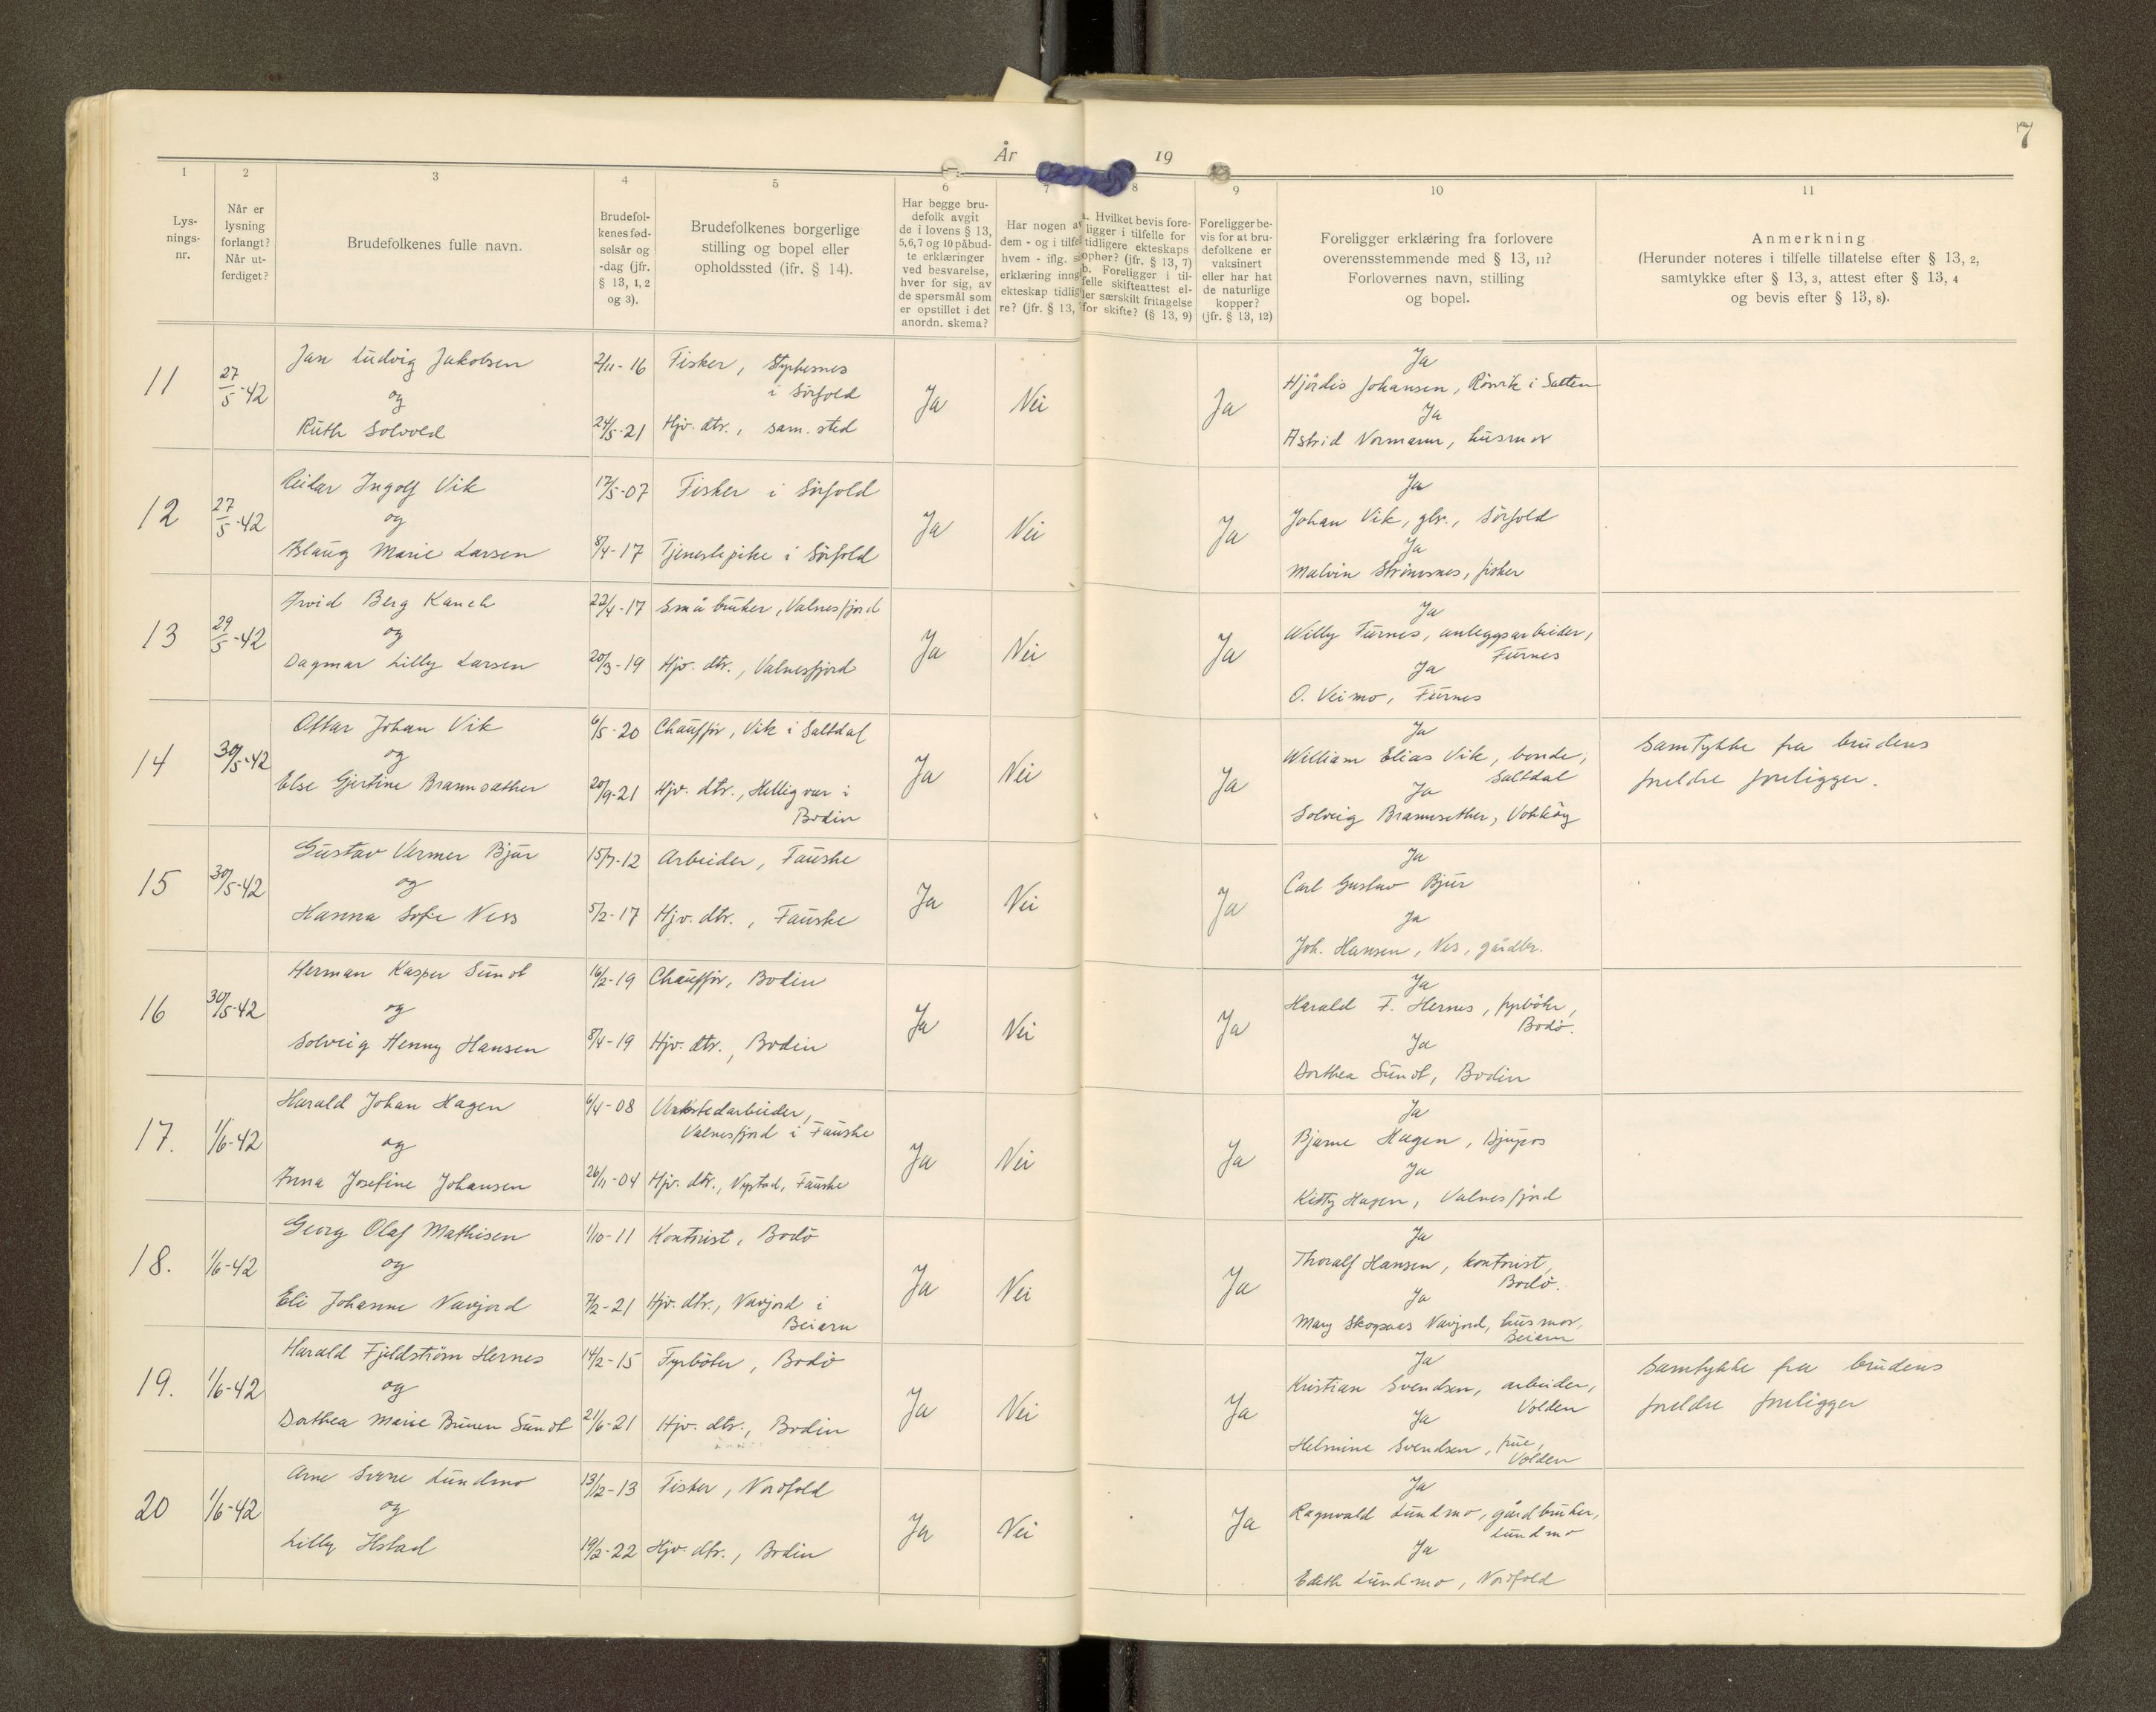 7
År 19
1 2 3 4 5 6 7 8 9 10 11
Lys-
nings-
nr.
Når er
lysning
forlangt?
Når ut-
ferdiget?
Brudefolkenes fulle navn.
Brudefol-
kenes fød-
selsår og
-dag (jfr.
§ 13, 1, 2
og 3).
Brudefolkenes borgerlige
stilling og bopel eller
opholdssted (jfr. § 14).
Har begge bru-
defolk avgit
de i lovens § 13,
5,6,7 og 10 påbud-
te erklæringer
ved besvarelse,
hver for sig, av
de spørsmål som
er opstillet i det
anordn. skema?
Har nogen av
dem - og i tilfe
hvem - iflg. s
erklæring inng
ekteskap tidlig
re? (jfr. § 13,
a. Hvilket bevis fore-
ligger i tilfelle for
tidligere ekteskaps
ophør? (jfr. § 13, 7)
b. Foreligger i til-
felle skifteattest el-
ler særskilt fritagelse
for skifte? (§ 13, 9)
Foreligger be-
vis for at bru-
defolkene er
vaksinert
eller har hat
de naturlige
kopper?
(jfr. § 13, 12)
Foreligger erklæring fra forlovere
overensstemmende med § 13, 11?
Forlovernes navn, stilling
og bopel.
Anmerkning
(Herunder noteres i tilfelle tillatelse efter § 13, 2,
samtykke efter § 13, 3, attest efter § 13, 4
og bevis efter § 13, 8).
11
27/5-42
Jan Ludvig Jakobsen
og
Ruth Solvold
2/11-16
24/5-21
Fisker, Styrkesnes
i Sörfold
Hjv. dtr., sam. sted
Ja
Nei
Ja
Ja
Hjördis Johansen, Rönvik i Salten
Ja
Astrid Normann, husmor
12
27/5-42
Reidar Ingolf Vik
og
Aslaug Marie Larsen
17/5-07
8/4-17
Fisker i Sörfold
Tjenestepike i Sörfold
Ja
Nei
Ja
Ja
Johan Vik, gbr., Sörfold
Ja
Malvin Strömsnes, fisker
13
29/5-42
Arvid Berg Kanck
og
Dagmar Lilly Larsen
22/4-17
20/3-19
Småbruker, Valnesfjord
Hjv. dtr., Valnesfjord
Ja
Nei
Ja
Ja
Willy Furnes, anleggsarbeider,
Furnes
Ja
O. Veimo, Furnes
14
30/5-42
Ottar Johan Vik
og
Else Gjertine Bramsæther
6/5-20
20/9-21
Chauffør, Vik i Saltdal
Hjv. dtr., Helligvær i
Bodin
Ja
Nei
Ja
Ja
William Elias Vik, bonde,
Saltdal
Ja
Solveig Bramsether,
Samtykke fra brudens
foreldre foreligger.
15
30/5-42
Gustav Verner Bjur
og
Hanna Sofie Ness
15/7-12
5/2-17
Arbeider, Fauske
Hjv. dtr., Fauske
Ja
Nei
Ja
Ja
Carl Gustav Bjur
Ja
Joh. Hansen, Nes, gårdbr.
16
30/5-42
Herman Kasper Sundt
og
Solveig Henny Hansen
16/2-19
8/4-19
Chauffør, Bodin
Hjv. dtr., Bodin
Ja
Nei
Ja
Ja
Harald F. Hernes, fyrböter,
Bodö.
Ja
Dorthea Sundt, Bodin
17.
1/6-42
Harald Johan Hagen
og
Anna Josefine Johansen
6/4-08
26/11-04
Verkstedarbeider,
Valnesfjord i Fauske
Hjv. dtr., Nystad, Fauske
Ja
Nei
Ja
Ja
Bjarne Hagen, Djupos
Ja
Kitty Hagen, Valnesfjord
18.
1/6-42
Georg Olaf Mathisen
og
Eli Johanne Navjord
1/10-11
7/2-21
Kontorist, Bodö
Hjv. dtr., Navjord i
Beiarn
Ja
Nei
Ja
Ja
Thoralf Hansen, kontorist,
Bodö.
Ja
Mary Skogsaas Navjord, husmor,
Beiarn
19.
1/6-42
Harald Fjeldström Hernes
og
Dorthea Marie Bruun Sundt
14/2-15
21/6-21
Fyrböter, Bodö
Hjv. dtr., Bodin
Ja
Nei
Ja
Ja
Kristian Svendsen, arbeider,
Volden
Ja
Helmine Svendsen, frue,
Volden
Samtykke fra brudens
foreldre foreligger
20
1/6-42
Arne Sverre Lundmo
og
Lilly Ilstad
13/12-13
19/2-22
Fisker, Nordfold
Hjv. dtr., Bodin
Ja
Nei
Ja
Ja
Ragnvald Lundmo, gårdbruker,
Lundmo
Ja
Edith Lundmo, Nordfold